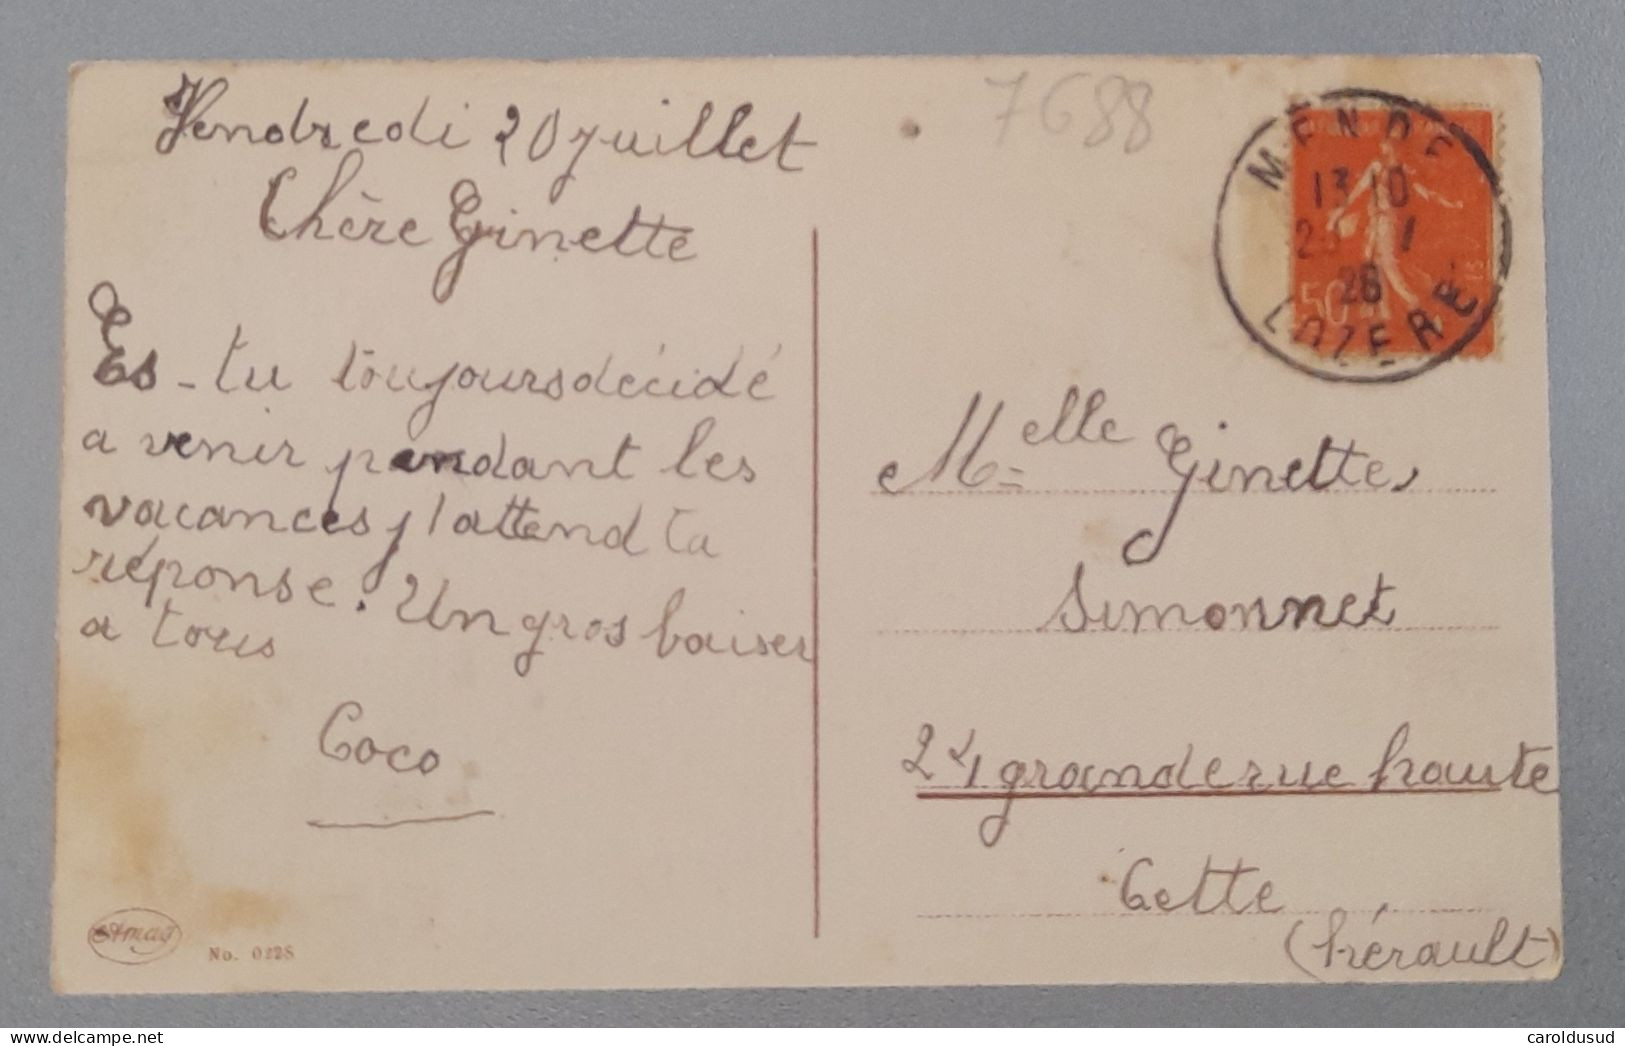 Vendredi 20 juillet
Chère Ginette
Es-tu toujours décidé
a venir pendant les
vacances j'attend ta
réponse. Un gros baiser
a tous
Coco
Amag
No. 0228
7688
MENDE
13 10
26
LOZERE
50
Melle Ginette
Simonnet
24 grande rue haute
Cette
(hérault)
caroldusud